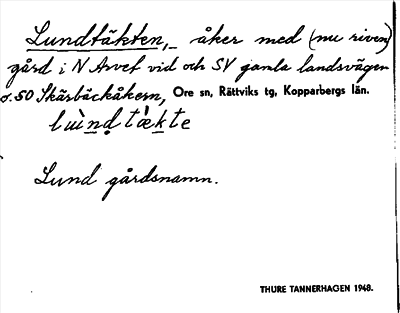 Lundtäkten, åker med (nu riven)
gård i N Arvet vid och SV gamla landsvägen
o. SO Skärbäckåkern, Ore sn, Rättviks tg, Kopparbergs län.
Lund gårdsnamn.
THURE TANNERHAGEN 1948.